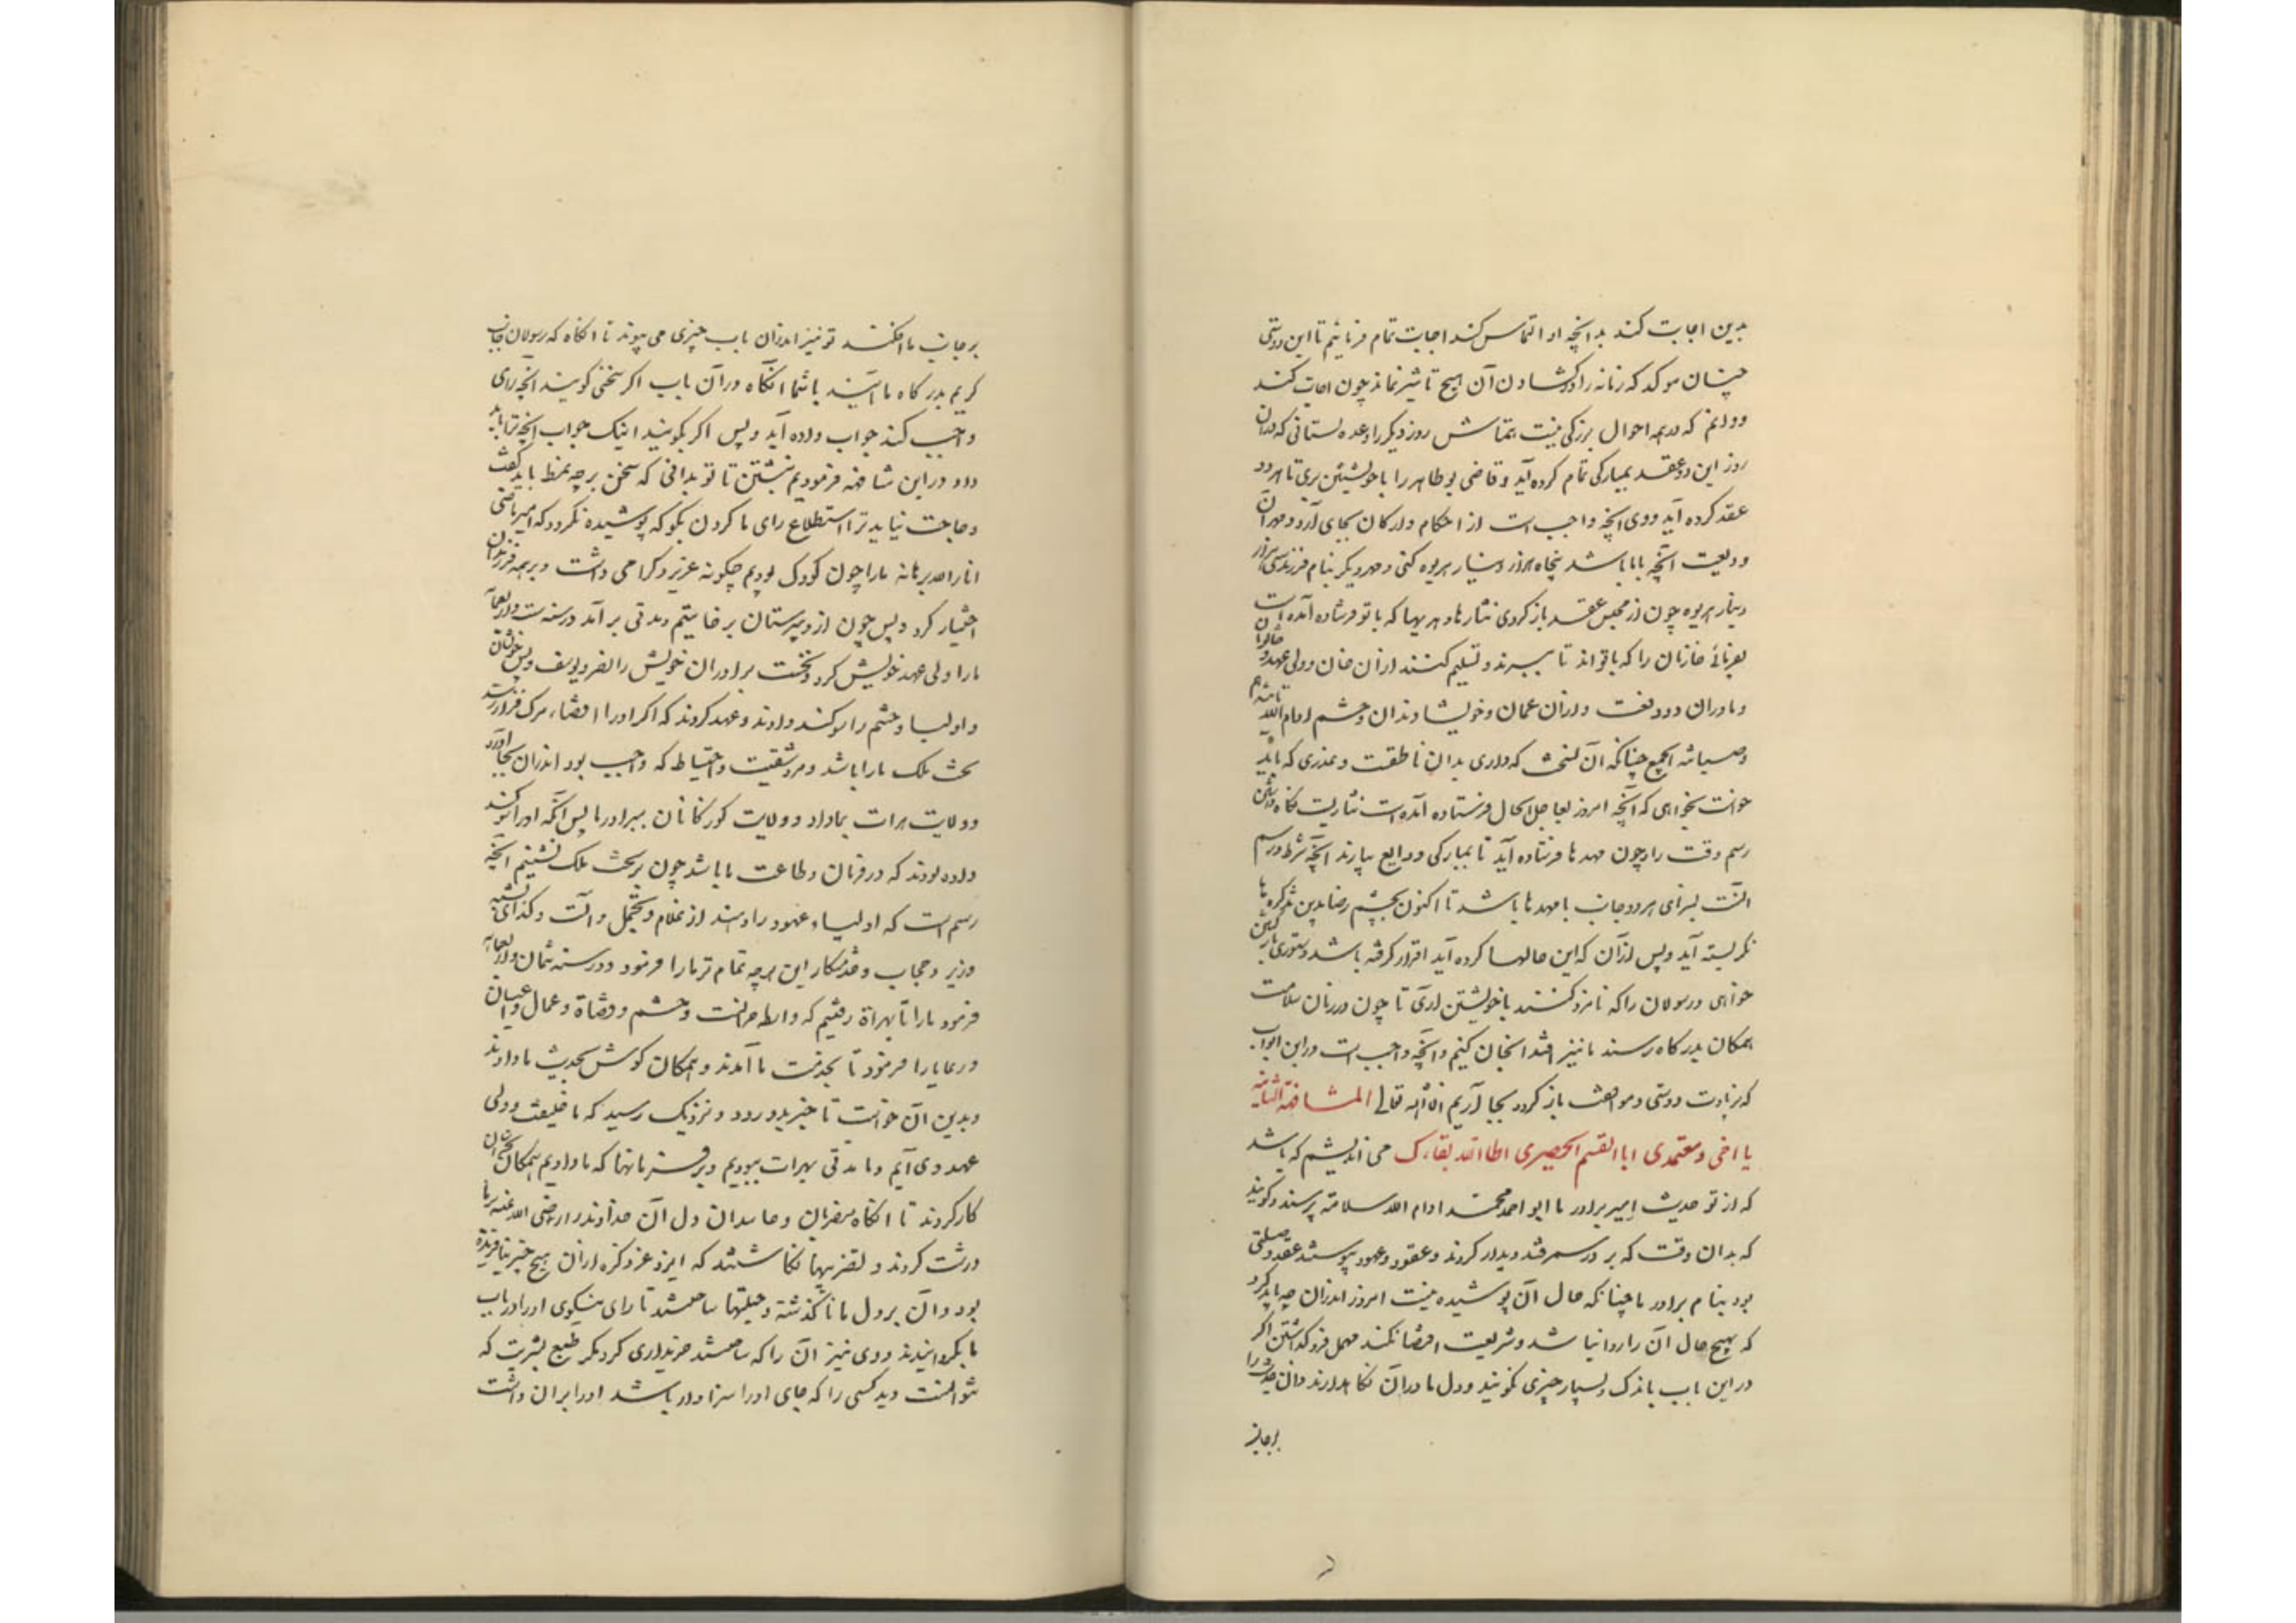 بدین اجابت کند بدانچه او التماس کند اجابت تمام فرمائیم تا این دوستی
چنان موکد که زمانه را در گشادن آن هیچ تاثیر نماند چون اجابت کند
و دانم که در همه احوال بزرگی نیست همتاش روز دیگر را وعده بستانی که در آن
روز این دو عقد بمبارکی تمام کرده آید و قاضی بوطاهر را با خویشتن بری تا هر دو
عقد کرده آید و وی آنچه واجب است از احکام و ارکان بجای آرد و مهر آن
ودیعت آنچه باما باشد پنجاه هزار دینار هریوه کنی و مهر دیگر بنام فرزند سی هزار
دینار هریوه چون از مجلس عقد باز گردی نثارها و هدیهها که با تو فرستاده آمده است
بفرمائی خازنان را که با تواند تا ببرند و تسلیم کنند از آن خان و ولی عهد و خاتونان
و مادران دو ودیعت و از آن عمان و خویشاوندان و حشم ادام الله تاییدهم
و صیانة الجمع چنانکه آن نسخت که داری بدان ناطقست و عذری که باید
خواست بخواهی که آنچه امروز بعاجل الحال فرستاده آمده است نثاریست نگاه داشتن
رسم وقت را و چون مهدها فرستاده آید تا بمبارکی ودایع بیارند آنچه شرط و رسم
آنست بسزای هر دو جانب با مهدها باشد تا اکنون بچشم رضا بدین تذکره‌ها
نگریسته آید و پس از آن که این حالها کرده آید و قرار گرفته باشد دستوری بازگشتن
خواهی و رسولان را که نامزد کنند با خویشتن آری تا چون در ضمان سلامت
همگان بدرگاه رسند ما نیز اقتدا بخان کنیم و آنچه واجب است در این ابواب
که زیادت دوستی و موافقت باز گردد بجا آریم ان‌شاءالله تعالی المشافهة الثانیه
یا اخی و معتمدی ابا القسم الحصیری اطال الله بقاءک می اندیشم که باشد
که از تو حدیث امیر برادر ما ابو احمد محمد ادام الله سلامته پرسند و گویند
که بدان وقت که بر در سمرقند دیدار کردند و عقود و عهود پیوستند عقد وصلتی
بود بنام برادر ما چنانکه حال آن پوشیده نیست امروز اندر آن چه باید کرد
که بهیچ حال آن را روا نباشد و شریعت اقتضا نکند مهمل فرو گذاشتن اگر
در این باب باندک و بسیار چیزی نگویند و دل ما در آن نگاه دارند و آن حدیث را
برجانب
برجانب ما افکنند تو نیز اندران باب چیزی می پیوند تا آنگاه که رسولان جانب
کریم بدرگاه ما آیند با شما آنگاه در آن باب اگر سخنی گویند آنچه رای
واجب کند جواب داده آید و پس اگر بگویند اینک جواب آنچه ترا باید
داد در این مشافهه فرمودیم نبشتن تا تو بدانی که سخن بر چه نمط باید گفت
و حاجت نیاید ترا استطلاع رای ما کردن بگو که پوشیده نگردد که امیر ماضی
انار الله برهانه ما را چون کودک بودیم چگونه عزیز و گرامی داشت و بر همه فرزندان
اختیار کرد و پس چون از دبیرستان برخاستیم و مدتی برآمد در سنه ست و اربعمائه
ما را ولی عهد خویش کرد و نخست برادران خویش را نصر و یوسف و پس خویشان
و اولیا و حشم را سوگند دادند و عهد کردند که اگر او را اقتضاء مرگ فراز رسد
تخت ملک ما را باشد و هر وثیقت و احتیاط که واجب بود اندران بجا آورد
و ولایت هرات بما داد و ولایت گورکانان ببرادر ما پس آنکه او را سوگند
داده بودند که در فرمان و طاعت ما باشد چون بر تخت ملک نشینیم آنچه
رسم است که اولیاء عهود را دهند از غلام و تجمل و آلت و کدخدای
وزیر و حجاب و خدمتکار این هر چه تمامتر ما را فرمود و در سنه ثمان و اربعمائه
فرمود ما را تا بهراة رفتیم که واسطه خراسانست و حشم و قضاة و عمال و اعیان
و رعایا را فرمود تا بخدمت ما آمدند و همگان گوش بحدیث ما دادند
و بدین آن خواست تا خبر بدور و نزدیک رسید که ما خلیفت و ولی
عهد وی‌ایم و ما مدتی بهرات ببودیم و بر فرمانها که ما دادیم همگان بخراسان
کار کردند تا آنگاه مضربان و حاسدان دل آن خداوند را رضی الله عنه بر ما
درشت کردند و تضریبها نگاشتند که ایزد عز ذکره از آن هیچ چیز نیافریده
بود و آن بر دل ما ناگذشته و حیلتها ساختند تا رای نیکوی او را در باب
ما بگردانیدند و وی نیز آن را که ساختند خریداری کرد مگر طبع بشریت که
نتوانست دید کسی را که جای او را سزاوار باشد او را بر آن داشت